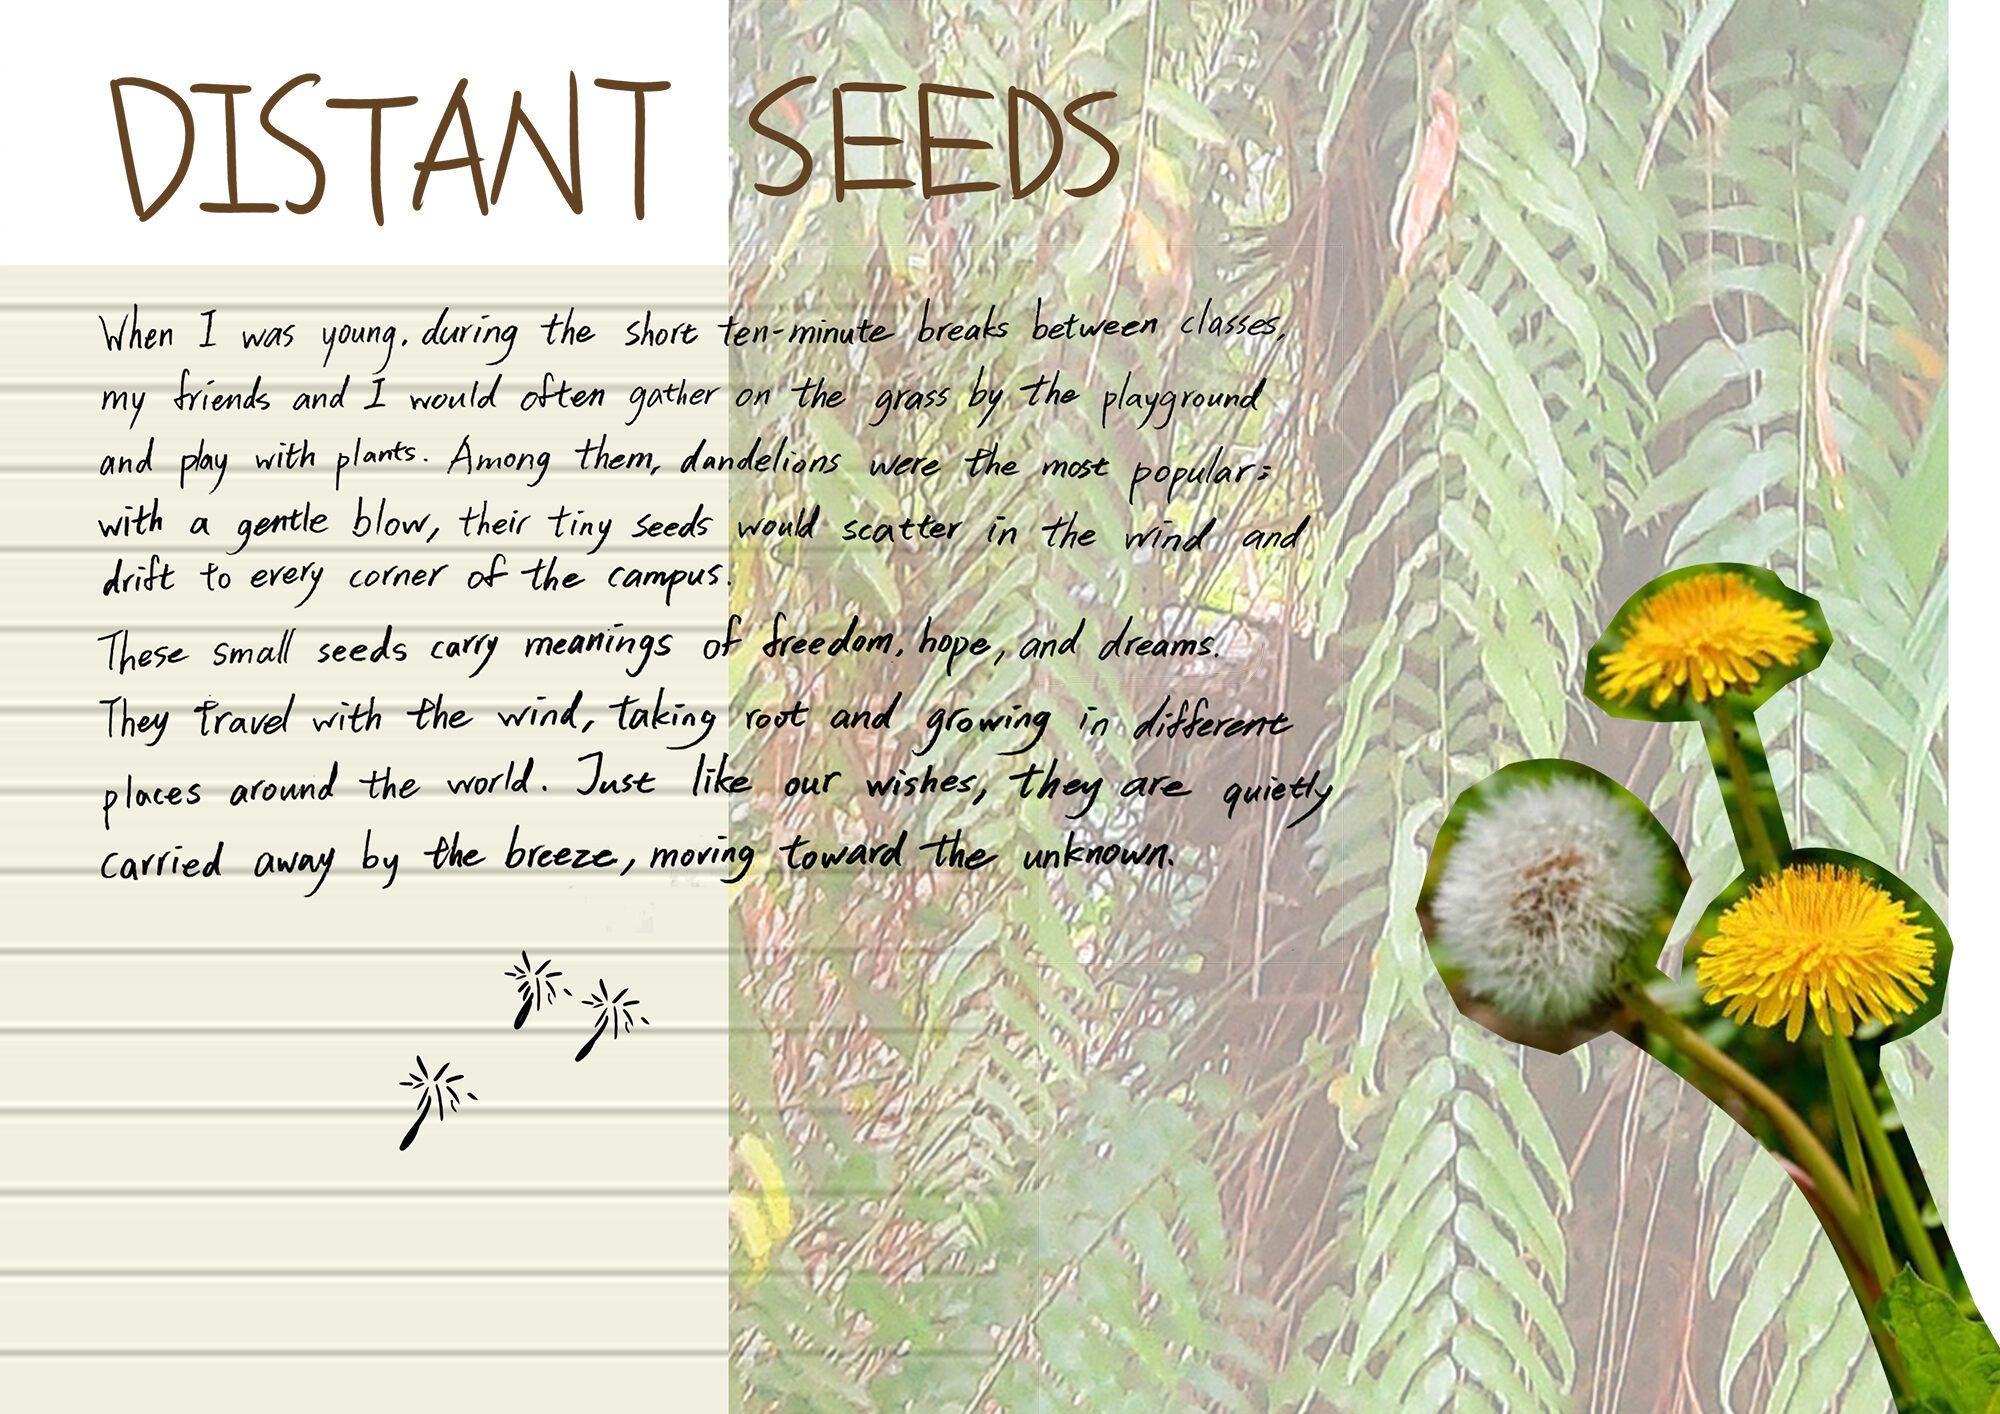 DISTANT SEEDS
When I was young, during the short ten-minute breaks between classes,
my friends and I would often gather on the grass by the playground
and play with plants. Among them, dandelions were the most popular:
with a gentle blow, their tiny seeds would scatter in the wind and
drift to every corner of the campus.
These small seeds carry meanings of freedom, hope, and dreams.
They travel with the wind, taking root and growing in different
places around the world. Just like our wishes, they are quietly
carried away by the breeze, moving toward the unknown.